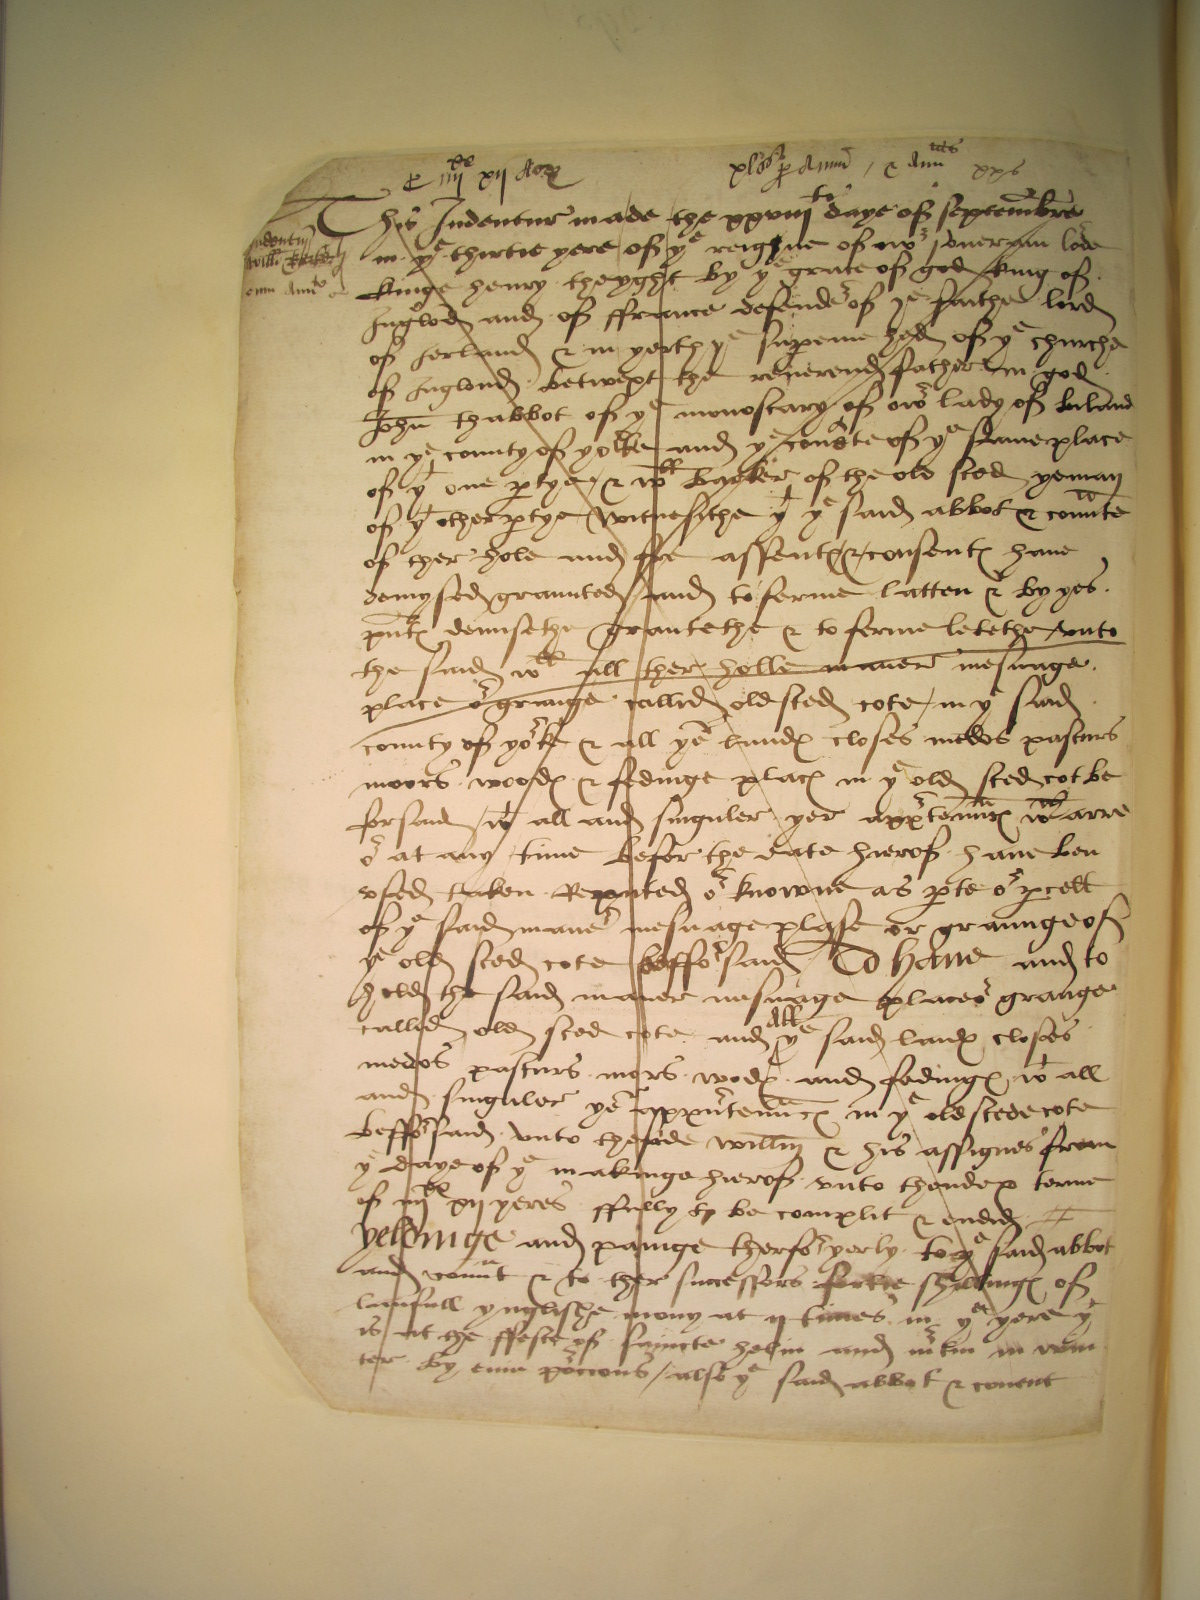 This Indentur made the xxviijth daye of Septembre
in ye thirtie yere of ye reighne of owr soueran lorde
kinge henry theyght by ye grace of god king of
Inglond and of ffrance defender of ye faithe lord
of Ierland & in yerth ye supreme hed of ye churche
of Inglond betwixt the reuerend father in god
John thabbot of ye monostary of owr lady of biland
in ye county of yorke and ye couete of ye same place
of yt one ptye / & Willm barker of the old sted yeman
of yt other ptye Witnesithe yt ye said abbot & couete
of ther hole and fre assent & consent haue
demysed graunted and to ferme latten & by yes
pnt demisethe grantethe & to ferme letethe vnto
the said Willm all ther holle maner mesuage
place or grange callid old sted cote / in ye said
county of yorke & all yer landes closes medos pasturs
moors woodes & fedinge places in ye old sted cot be
forsaid / wt all and singuler yer apptenances wch arre
or at any time befor the date hierof haue ben
vsed taken Reputed or knowne as pte or pcell
of ye said maner mesuage plase or graunge of
ye old sted cote beffor said To haue and to
hold the said maner mesuage place or grange
callid old sted cote and all ye said landes closes
medos pasturs mors wodes and fedinges wt all
and singuler yer appurtenances in ye old stede cote
beffor said vnto the sade Willm & his assignes from
ye daye of ye makinge hierof vnto thende & terme
of iiijxx xij yeres ffully to be complit & endid
yeldinge and painge therfor yerly to ye said abbot
and couent & to ther successors fortie shillinges of
laufull ynglishe mony at ij times in ye yere yt
is at the ffeste of saincte helin and mrtin in wyn
ter by euin porcions / also ye said abbot & couent